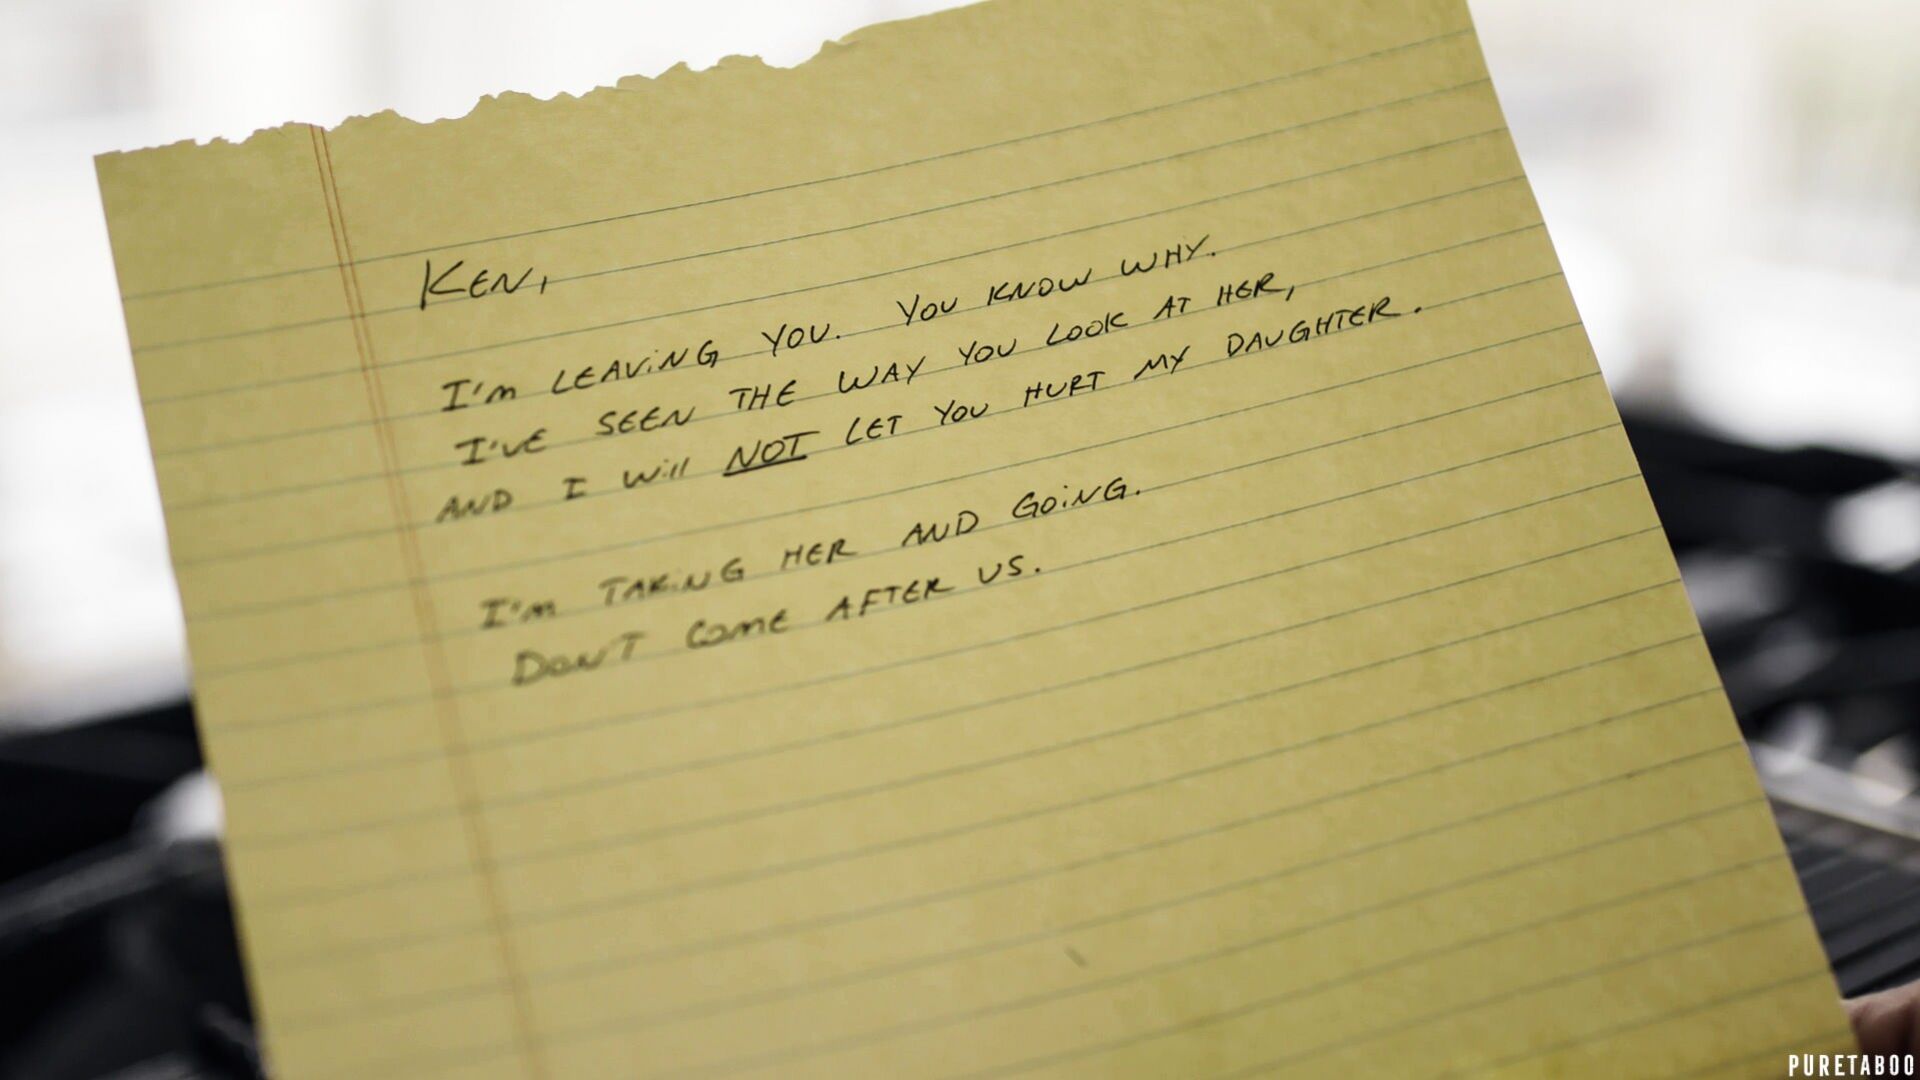 KEN,
I'm LEAViNG YOU. YOU KNOW WHY.
I'VE SEEN THE WAY YOU LOOK AT HER,
AND I Will NOT LET YOU HURT MY DAUGHTER.
I'm TAKiNG HER AND GOiNG.
DON'T Come AFTER US.
PURETABOO